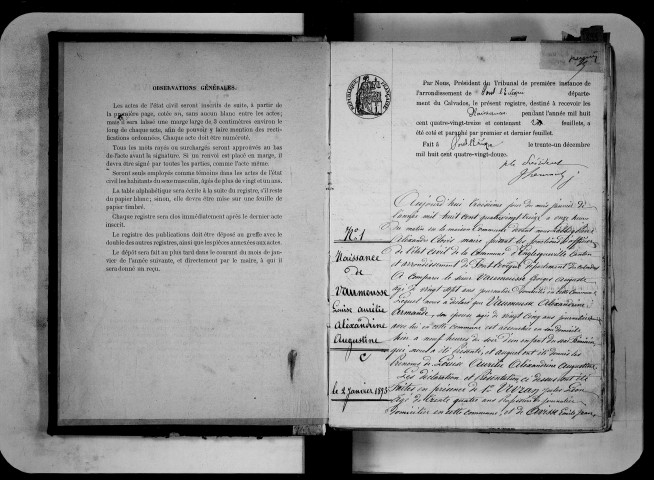 OBSERVATIONS GÉNÉRALES.
Les actes de l'état civil seront inscrits de suite, à partir de
la première page, cotée un, sans aucun blanc entre les actes;
mais il sera laissé une marge large de 3 centimètres environ le
long de chaque acte, afin de pouvoir y faire mention des recti-
fications ordonnées. Chaque acte doit être numéroté.
Tous les mots rayés ou surchargés seront approuvés au bas
de l'acte avant la signature. Si un renvoi est placé en marge, il
devra être signé par toutes les parties, comme l'acte même.
Seront seuls employés comme témoins dans les actes de l'état
civil les habitants du sexe masculin, âgés de plus de vingt et un ans.
La table alphabétique sera écrite à la suite du registre, s'il reste
du papier blanc; sinon, elle devra être mise sur une feuille de
papier timbré.
Chaque registre sera clos immédiatement après le dernier acte
inscrit.
Le registre des publications doit être déposé au greffe avec le
double des autres registres, ainsi que les pièces annexées aux actes.
Le dépôt sera fait au plus tard dans le courant du mois de jan-
vier de l'année suivante, et directement par le maire, à qui il
sera donné un reçu.
Par Nous, Président du Tribunal de première instance de
l'arrondissement de Pont l'Evêque départe-
ment du Calvados, le présent registre, destiné à recevoir les
Naissances pendant l'année mil huit
cent quatre-vingt-treize et contenant feuillets, a
été coté et paraphé par premier et dernier feuillet.
Fait à Pont l'Evêque le trente-un décembre
mil huit cent quatre-vingt-douze.
Président
N° 1
Naissance
de
Vaumousse
Louise Aurélie
Alexandrine
Augustine
C
le 2 Janvier 1893
Aujourd'hui troisième jour du mois janvier de
l'année mil huit cent quatre vingt treize à onze heures
du matin en la maison Commune devant nous
Alexandre maire faisant les fonctions d'officier
de l'état civil de la commune d' Canton
et arrondissement de Pont l'Evêque département du Calvados
A comparu le sieur Vaumousse Auguste
âgé de vingt sept ans journalier domicilié en cette commune
Lequel nous a déclaré que Vaumousse Alexandrine
Armande, son épouse âgée de vingt cinq ans journalière
avec lui en cette commune est accouchée en son domicile
hier à neuf heures du soir d'un enfant du sexe féminin
qui nous a été présenté, et auquel ont été donnés les
prénoms de Louise Aurélie Alexandrine Augustine
Les déclaration et présentation ci dessus ont été
faites en présence de Léon
âgé de trente quatre ans profession journalier
domicilié en cette commune, et de